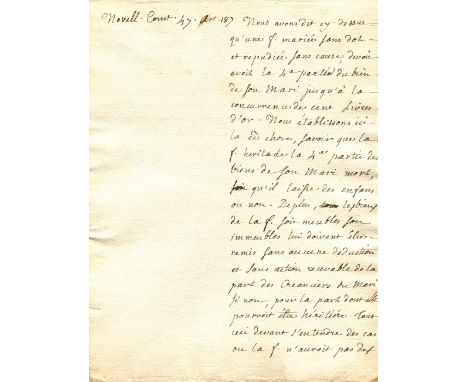 Novell. Const. 47. Art. 187
Nous avons dit cy dessus
qu'une f. mariée sans dot
et repudiée sans cause devoit
avoit la 4e partie du bien
de son Mari jusqu'à la
concurrence de cent Livres
d'or. Nous établissons ici
la chose, savoir que la
f. herite de la 4e partie des
biens de son Mari mort,
qu'il laisse des enfans
ou non. De plus, les biens
de la f. soie meubles soie
immeubles lui doivent être
remis sans aucune deduction
et sans action recevable de la
part des Creanciers du Mari
si non, pour la part dont elle
pourroit être héritière. Tout
ceci devant s'entendre des cas
ou la f. n'auroit pas de